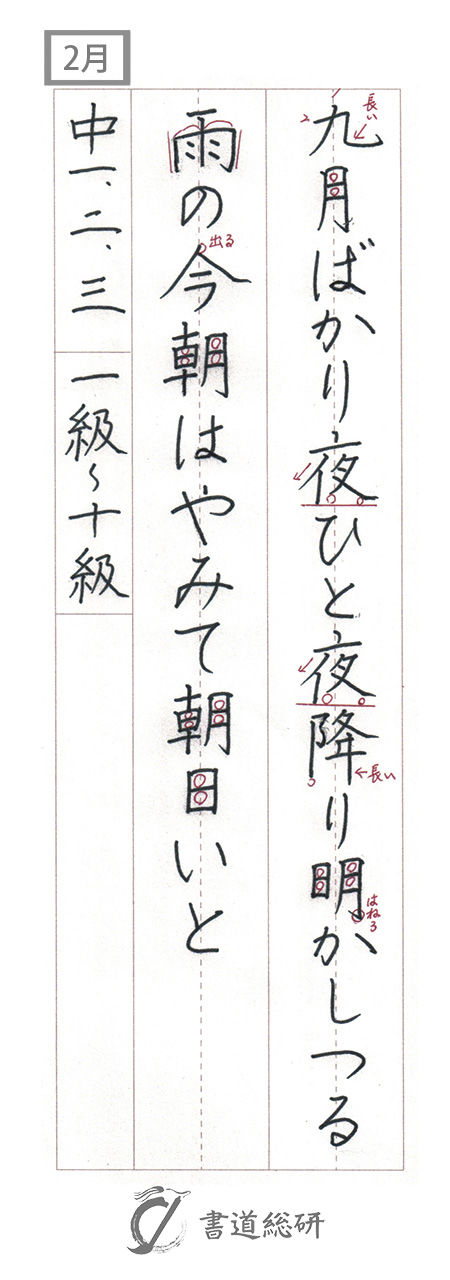 2月
九月ばかり夜ひと夜降り明かしつる
長い
2
長い
2
はねる
雨の今朝はやみて朝日いと
出る
中一、二、三
一級～十級
書道総研